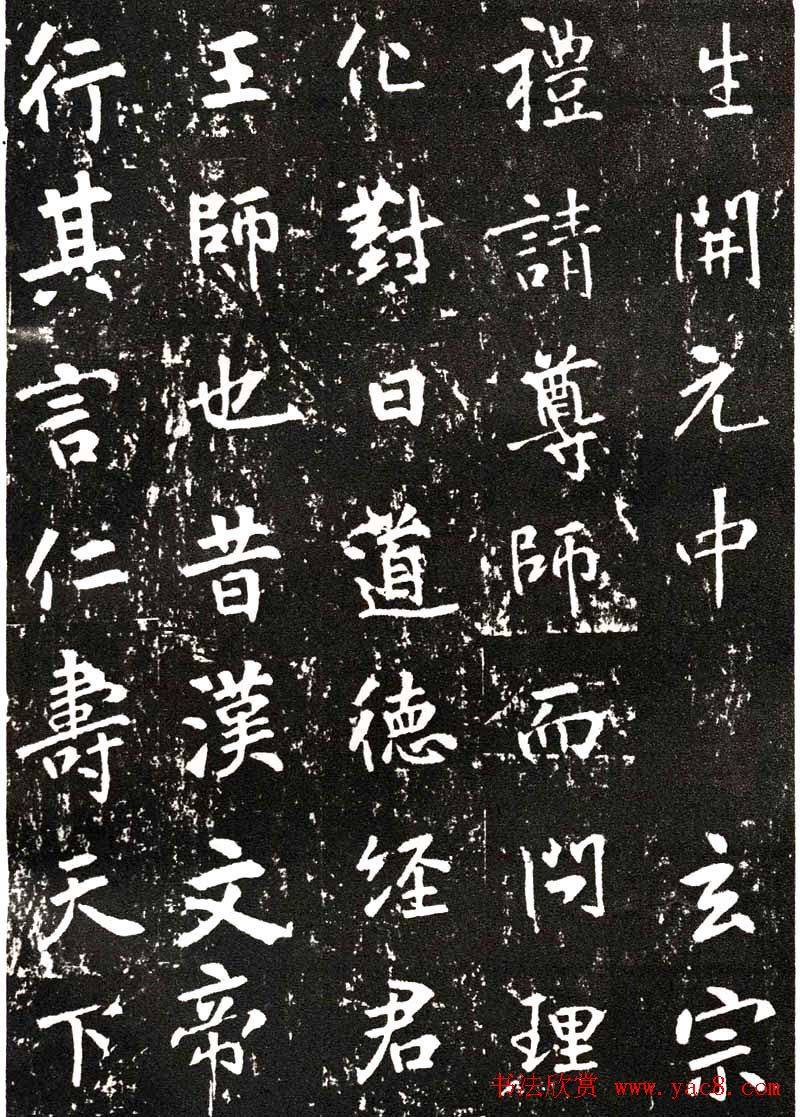 生開元中 玄宗
禮請尊師而問理
化對曰道德經君
王師也昔漢文帝
行其言仁壽天下
书法欣赏 www.yac8.com